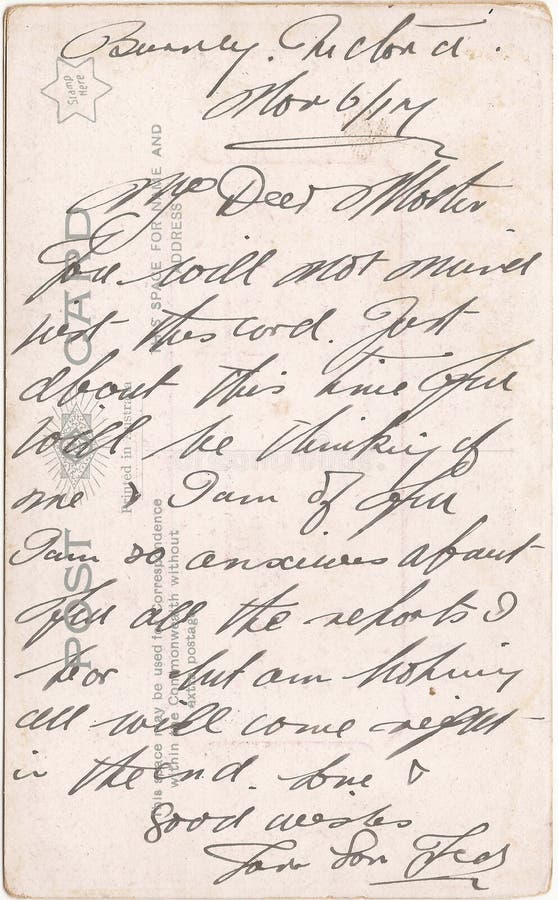 Burnley. Victoria.
Nov 6/17
My Dear Mother
You will not mind
just this card. Just
about this time you
will be thinking of
me & I am of you
I am so anxious about
you all the reports I
hear but am hoping
all will come right
in the end. love &
Good wishes
Your Son
Stamp Here
POST CARD
THIS SPACE FOR NAME AND ADDRESS
Printed in Australia
This space may be used for Correspondence
within the Commonwealth without
extra postage